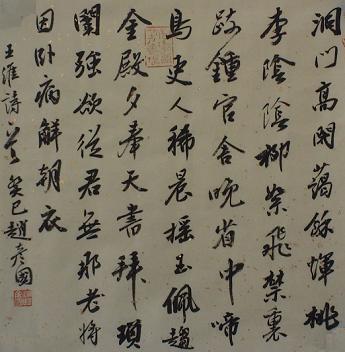 洞門高閣藹餘輝桃
李陰陰柳絮飛禁裏
疏鍾官舍晚省中啼
鳥吏人稀晨摇玉佩趨
金殿夕奉天書拜瑣
闈強欲從君無那老將
因卧病解朝衣
王維詩 癸巳趙彥國